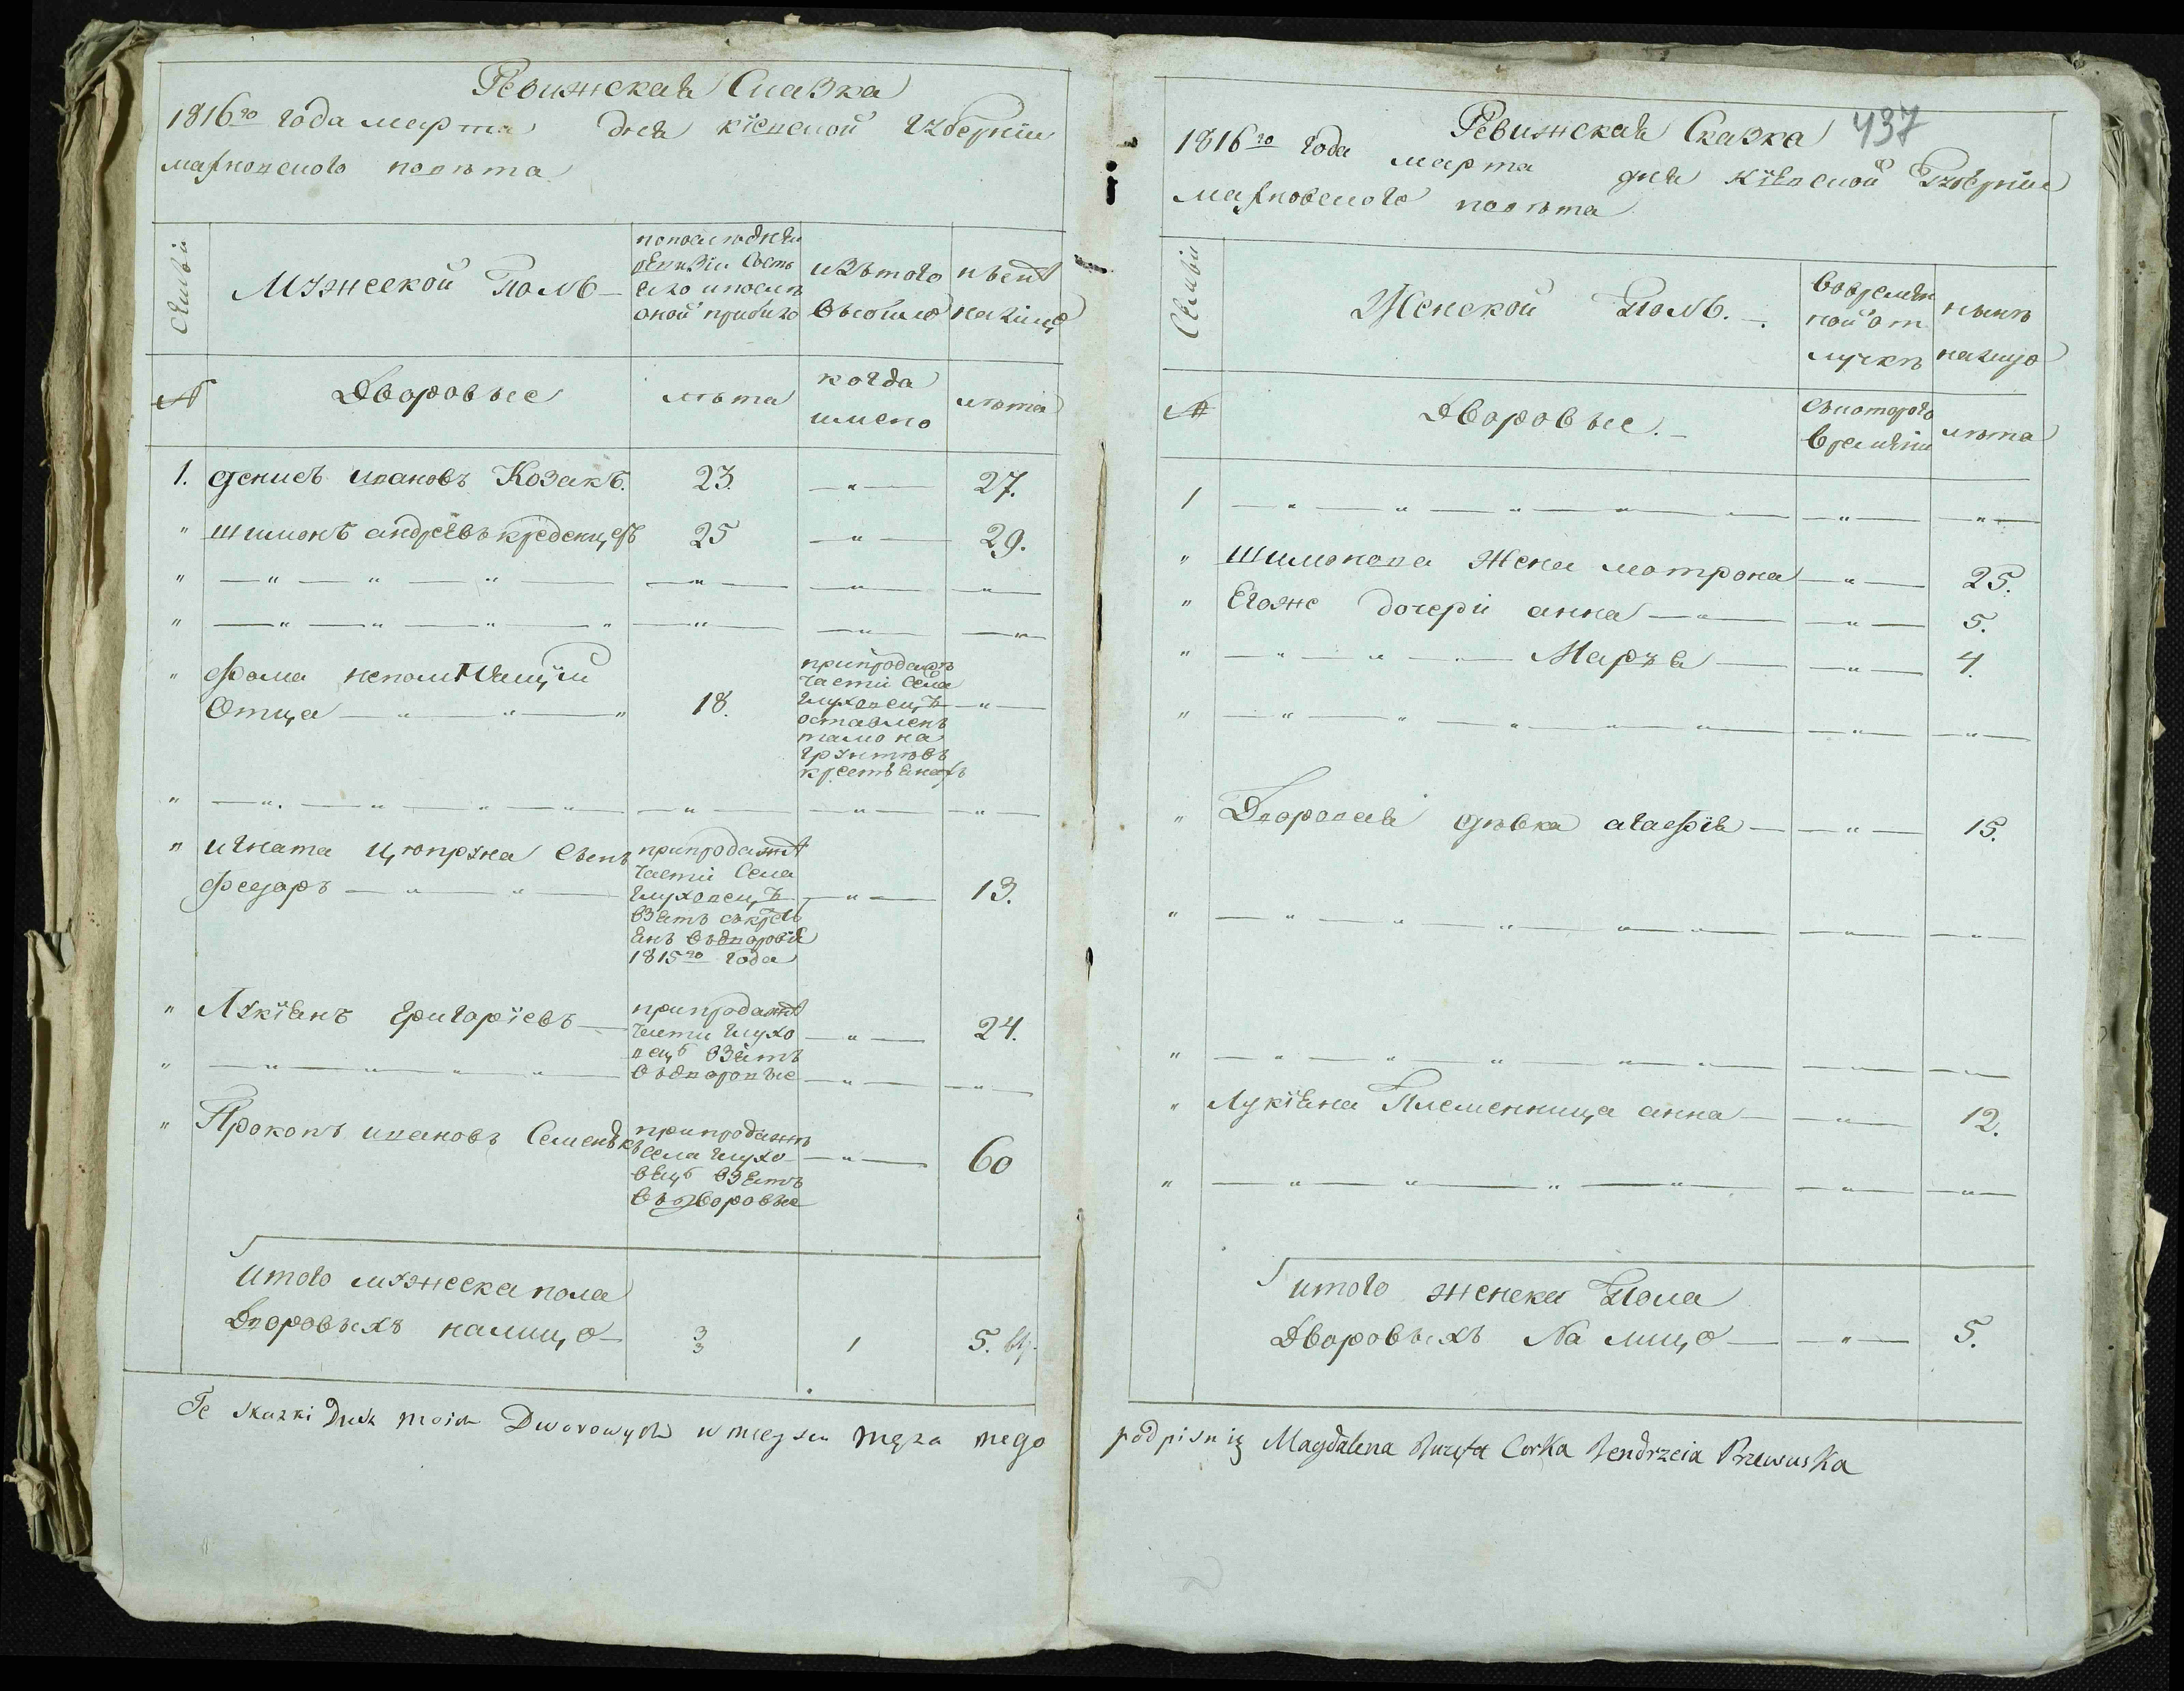 Ревижская Сказка
1816го года марта дня кіевской губерніи
махновского повѣта
Семьи
Мужеской Полъ
по последней
ревизіи состо
яло и после
оной прибыло
изъ того
выбыло
нынѣ
налицо
№
Дворовые
лѣта
когда
имено
лѣта
1. Денисъ ивановъ Козакъ. 23. 27.
" Шимонъ андрѣевъ креденцеръ 25 29.
" Фома непомнящіи
Отца 18.
припродажѣ
части села
глуховецъ
оставленъ
тамо на
грунтовъ
крестьянахъ
" игната цюпруна сынъ
Федоръ 13.
припродажѣ
части села
глуховецъ
взятъ съ крестъ
янъ въ дворовіе
1815го года
" Лукіянъ григоріевъ 24.
припродажѣ
части глухо
вецъ взятъ
въ дворовые
" Прокопъ ивановъ Семенюкъ 60
припродажѣ
села глухо
вецъ взятъ
въ дворовые
итого мужеска пола
Дворовыхъ налицо 3 1 5.
Te skazki Dusz moich Dworowych w mieyscu męża mego
437
Ревижская Сказка
1816го года марта дня кіевской губерніи
махновского повѣта
Семьи
Женской Полъ.
во времен
ной от
лучкѣ
нынѣ
налицо
№
Дворовые.
съ которого
времяни
лѣта
1
" Шимонова жена мотрона 25.
" Егоже дочери анна 5.
" Маръя 4.
" Дворовая дѣвка агафія 15.
" Лукіяна Племенница анна 12.
итого женска Пола
Дворовыхъ На лицо 5.
podpisuię Magdalena Corka Jendrzeia Rzewuska